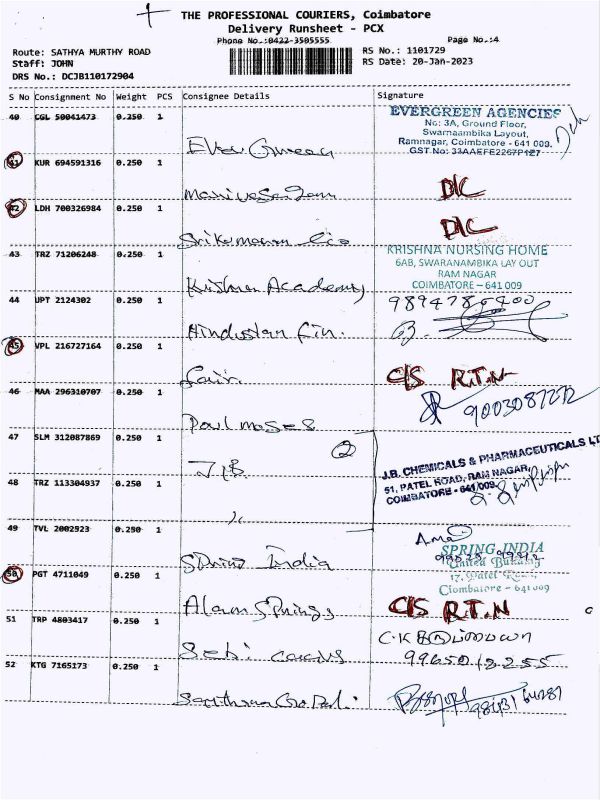 THE PROFESSIONAL COURIERS, Coimbatore
Delivery Runsheet - PCX
Phone No.:0422-3505555
Page No.:4
Route: SATHYA MURTHY ROAD
Staff: JOHN
DRS No.: DCJB110172904
RS No.: 1101729
RS Date: 20-Jan-2023
S No Consignment No Weight PCS Consignee Details Signature
40 CGL 50041473 0.250 1
Ever Green
EVERGREEN AGENCIES
No: 3A, Ground Floor,
Swarnaambika Layout,
Ramnagar, Coimbatore - 641 009.
GST No: 33AAEFE2267P1Z7
41 KUR 694591316 0.250 1
D/C
42 LDH 700326984 0.250 1
D/C
43 TRZ 71206248 0.250 1
Krishna Academy
KRISHNA NURSING HOME
6AB, SWARANAMBIKA LAY OUT
RAM NAGAR
COIMBATORE - 641 009
44 UPT 2124302 0.250 1
Hindustan Fin.
45 VPL 216727164 0.250 1
Fair.
C/S R.T.N
46 MAA 296310707 0.250 1
Paul moses
9003087272
47 SLM 312087869 0.250 1
J.B
2
J.B. CHEMICALS & PHARMACEUTICALS LT
51, PATEL ROAD, RAM NAGAR,
COIMBATORE - 641 009.
48 TRZ 113304937 0.250 1
49 TVL 2002923 0.250 1
Spring India
SPRING INDIA
United Building
17, Patel Road,
Coimbatore - 641 009
50 PGT 4711049 0.250 1
Alarm Springs
C/S R.T.N
51 TRP 4803417 0.250 1
99650 12255
52 KTG 7165173 0.250 1